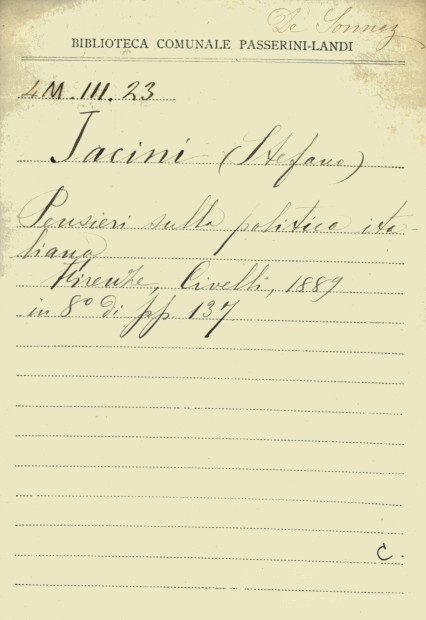 BIBLIOTECA COMUNALE PASSERINI-LANDI
4M.III.23
Jacini (Stefano)
Pensieri sulla politica ita-
liana
Firenze, Civelli, 1889
in 8° di pp. 137
C.